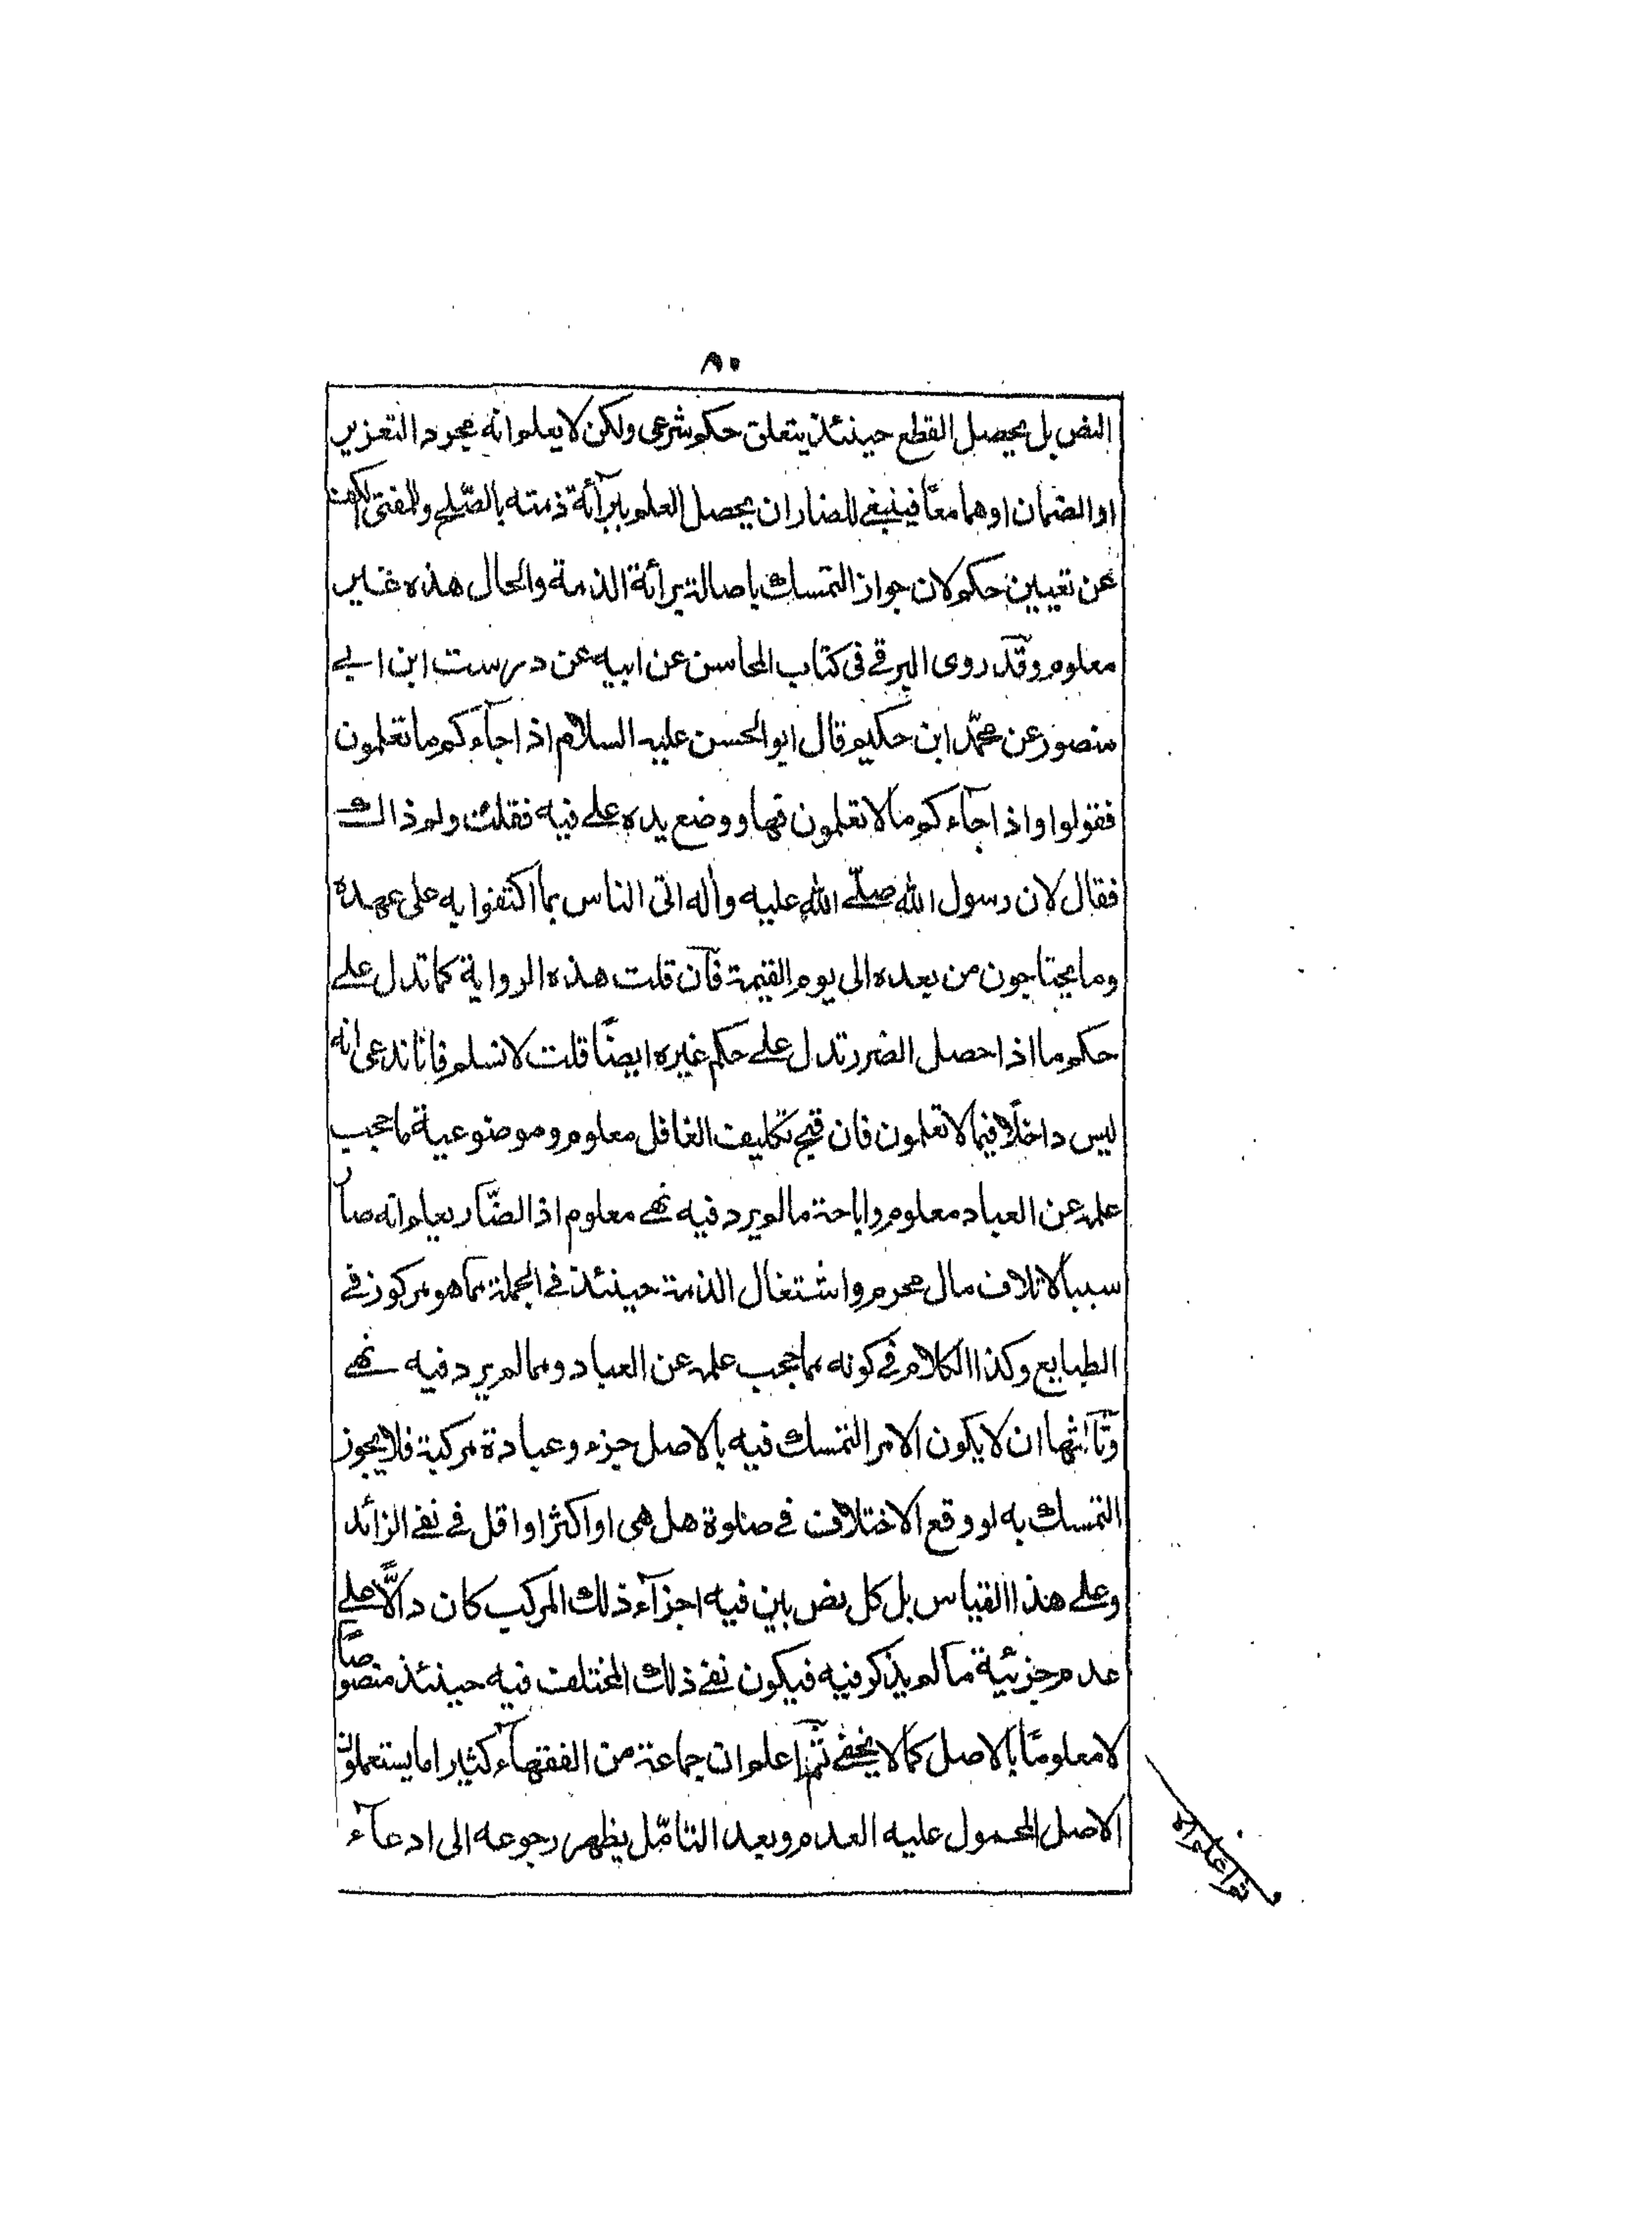 ٨٠
النص بل يحصل القطع حينئذ يتعلق حكم شرعى ولكن لا يعلم انه مجرد التعزير
او الضمان او هما معًا فينبغے للضار ان يحصل العلم ببرآئة ذمته بالصّلح وللمفتى الكف
عن تعيين حكم لان جواز التمسك باصالة برائة الذمة والحال هذه غير
معلوم وقد روى البرقے فى كتاب المحاسن عن ابيه عن درست ابن ابے
منصور عن محمّد ابن حكيم قال ابو الحسن عليه السلام اذا جآءكم ما تعلمون
فقولوا واذا جآءكم ما لا تعلمون فها ووضع يده علے فيه فقلت ولم ذاك
فقال لان رسول الله صلّے الله عليه واله اتى الناس بما اكتفوا به على عهده
وما يحتاجون من بعده الى يوم القيمة فآن قلت هذه الرواية كما تدل علے
حكم ما اذا حصل الضرر تدل علے حكم غيره ايضًا قلت لا نسلم فانا ندعى انه
ليس داخلًا فيما لا تعلمون فان قبح تكليف الغافل معلوم وموضوعية ما حجب
علمه عن العباد معلوم واباحة ما لم يرد فيه نهے معلوم اذ الضّار يعلم انه صار
سببا لاتلاف مال محرم واشتغال الذمة حينئذ فے الجملة مما هو مركوز فے
الطبايع وكذا الكلام فے كونه مما حجب علمه عن العباد ومما لم يرد فيه نهے
وثآلثها ان لا يكون الامر التمسك فيه بالاصل جزء وعبادة مركبة فلا يجوز
التمسك به لو وقع الاختلاف فے صلوة هل هى او اكثر او اقل فے نفے الزائد
وعلے هذا القياس بل كل نص بين فيه اجزآء ذلك المركب كان دالًّا علے
عدم جزئية ما لم يذكر فيه فيكون نفے ذلك المختلف فيه حينئذ منصوصًا
لا معلومًا بالاصل كما لا يخفے ثم اعلم ان جماعة من الفقهآء كثيرا ما يستعملون
الاصل المحمول عليه العدم وبعد التامّل يظهر رجوعه الى ادعآء